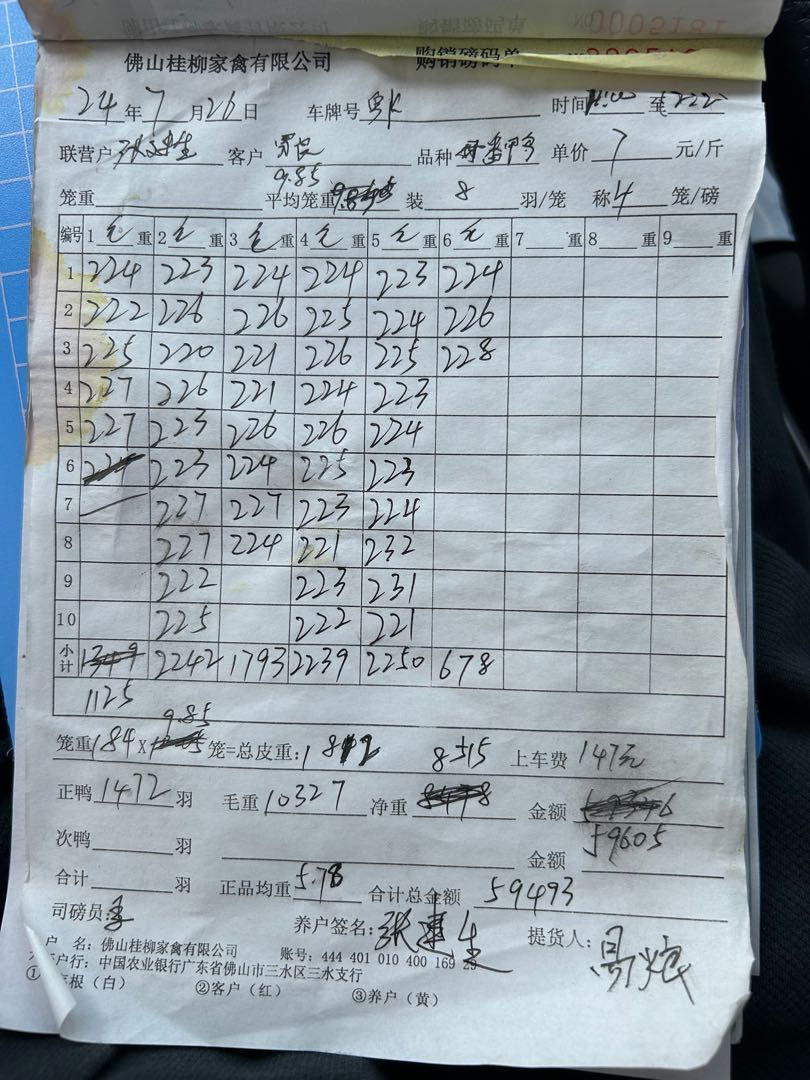 佛山桂柳家禽有限公司 购销磅码单
24年7月26日 车牌号 时间 至
联营户 客户 品种 单价 7 元/斤
9.85
笼重 平均笼重 装 8 羽/笼 称 4 笼/磅
编号 1 毛 重 2 毛 重 3 毛 重 4 毛 重 5 毛 重 6 毛 重 7 重 8 重 9 重
1 224 223 224 224 223 224
2 222 226 226 225 224 226
3 225 220 221 226 225 228
4 227 226 221 224 223
5 227 223 226 226 224
6 223 224 225 223
7 227 227 223 224
8 227 224 221 232
9 222 223 231
10 225 222 221
小计 2242 1793 2239 2250 678
1125
9.85
笼重 184 X 笼=总皮重: 1812 8515 上车费 147元
正鸭 1472 羽 毛重 10327 净重 金额
59605
次鸭 羽 金额
合计 羽 正品均重 5.78 合计总金额 59493
司磅员: 养户签名: 张建生 提货人:
户 名: 佛山桂柳家禽有限公司 账号: 444 401 010 400 169 29
户行: 中国农业银行广东省佛山市三水区三水支行
① 根(白) ②客户(红) ③养户(黄)